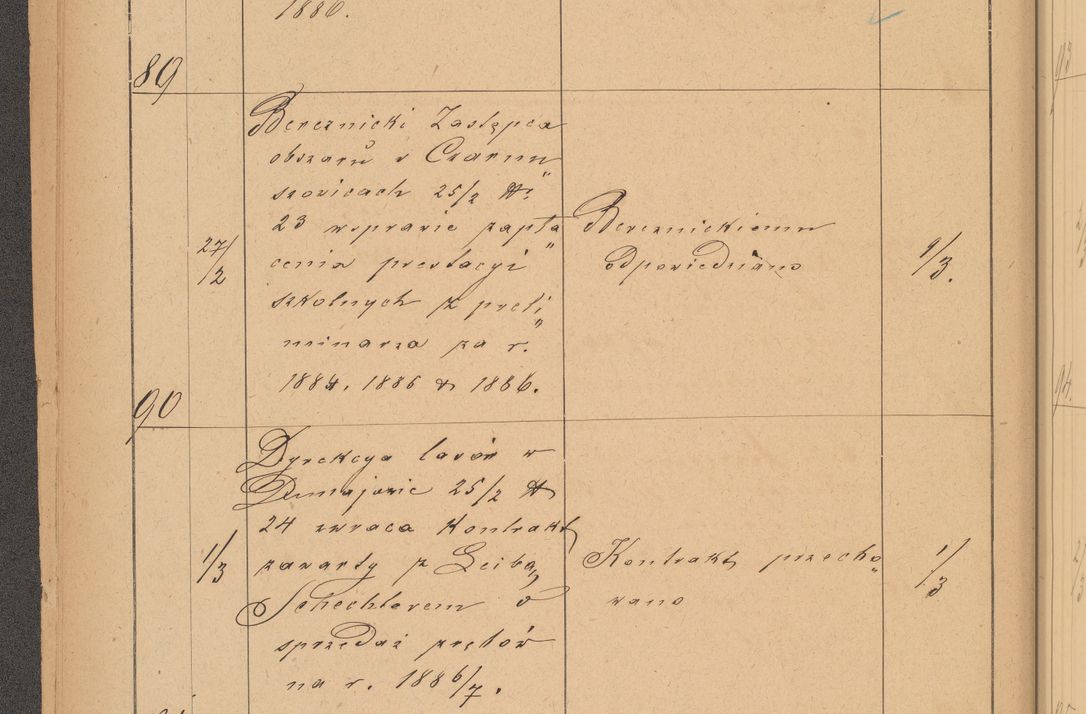 1886.
89
Bereznicki Zastępca
obszaru w Czarnu„
szowicach 25/2 №
23 wsprawie zapła„
27/2
cenia prestacyi
szkolnych z preli„
minarza za r.
1884, 1885 & 1886.
Bereznickiemu
odpowiedziano
1/3.
90
Dyrekcya lasów w
Dunajowie 25/2 №
24 zwraca Kontrakt
1/3
zawarty z Leibą
Schechterem o
sprzedaż prętów
na r. 1886/7.
Kontrakt przecho„
wano
1/3
93
94.